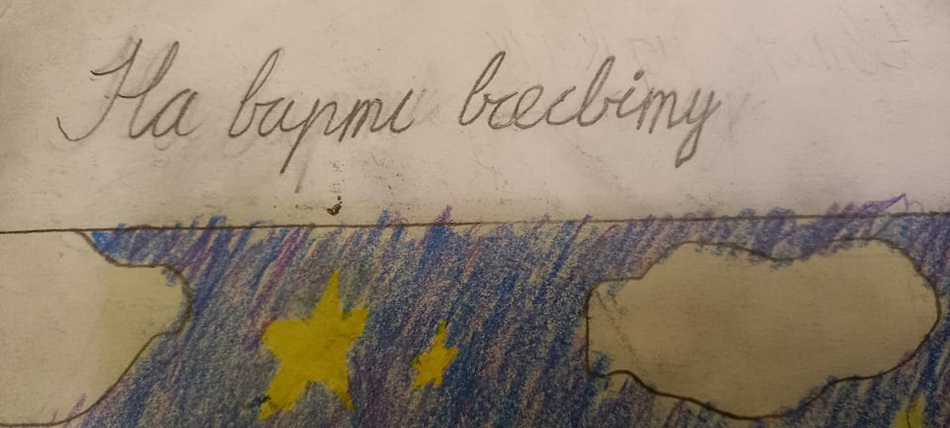 На варті всесвіту